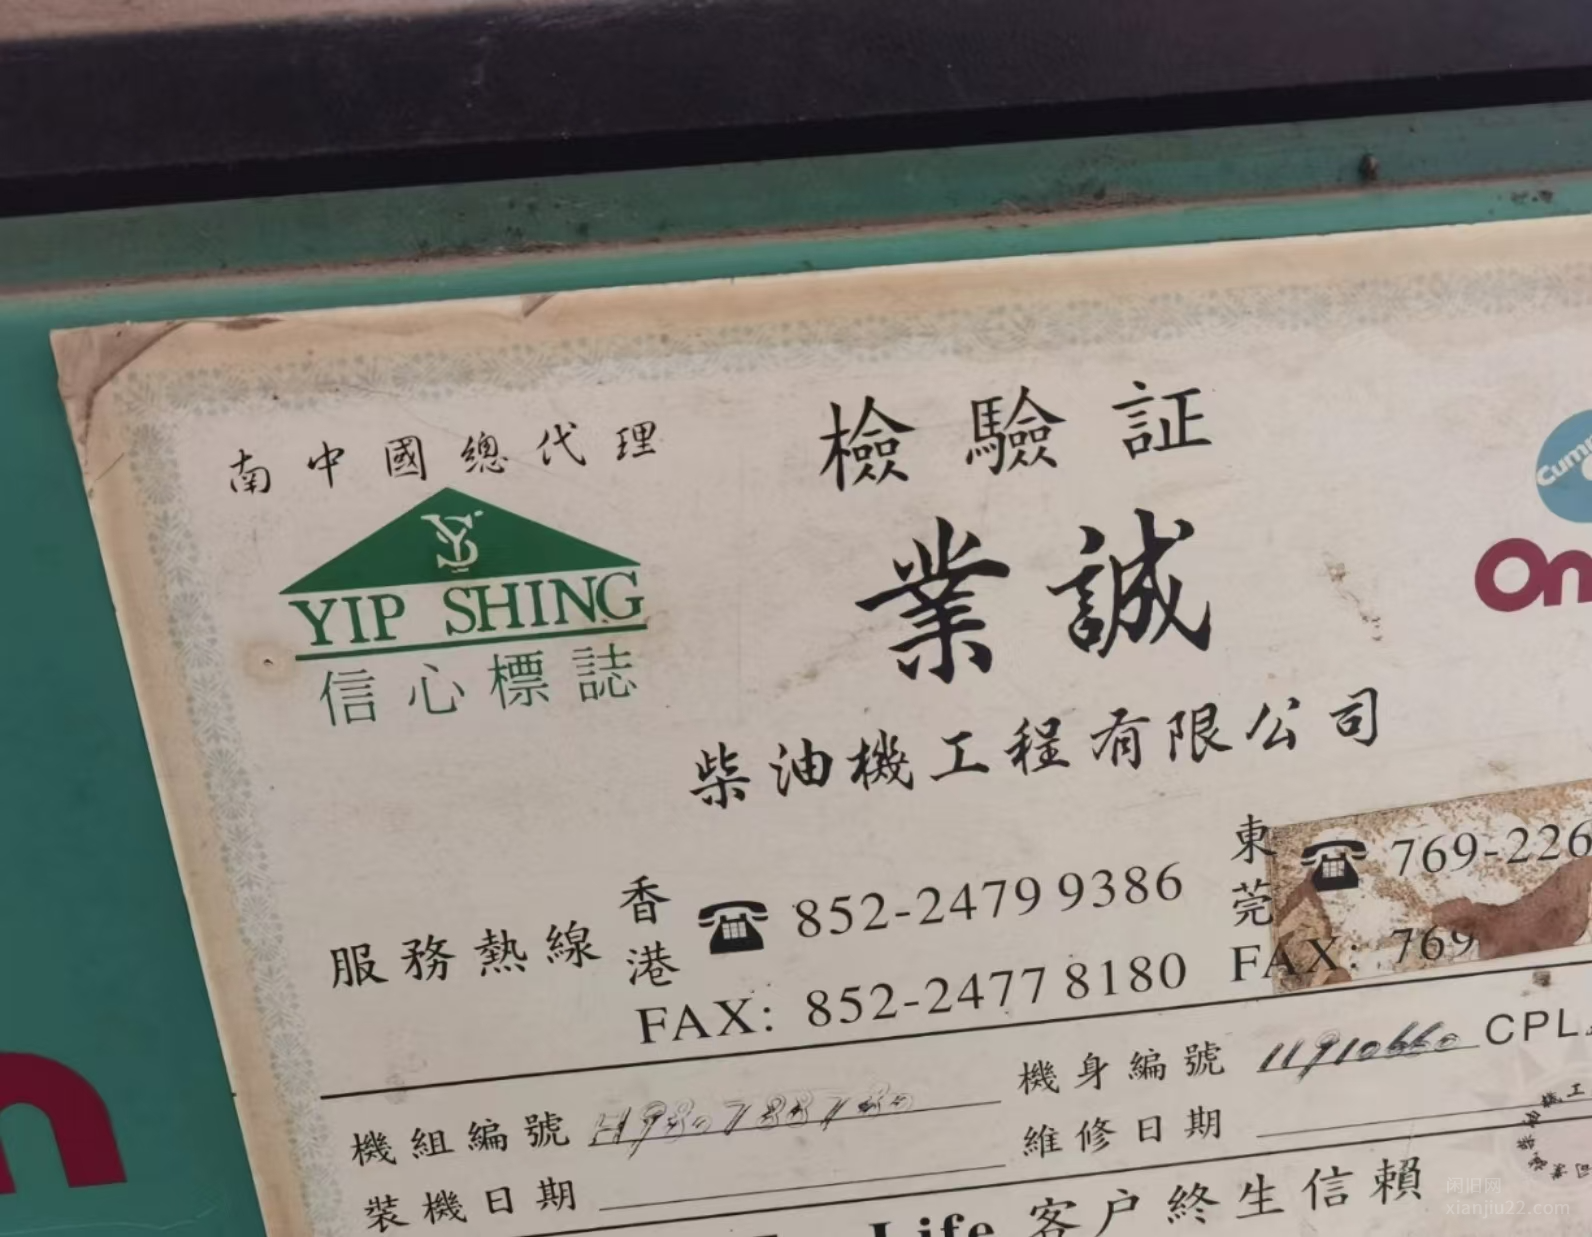 南中國總代理
檢驗証
YS
YIP SHING
信心標誌
業誠
柴油機工程有限公司
服務熱線
香港 ☎ 852-2479 9386
FAX: 852-2477 8180
東莞 ☎ 769-226
FAX: 769
機組編號
機身編號 11910660 CPL
裝機日期
維修日期
Life 客户終生信賴
闲旧网
xianjiu22.com